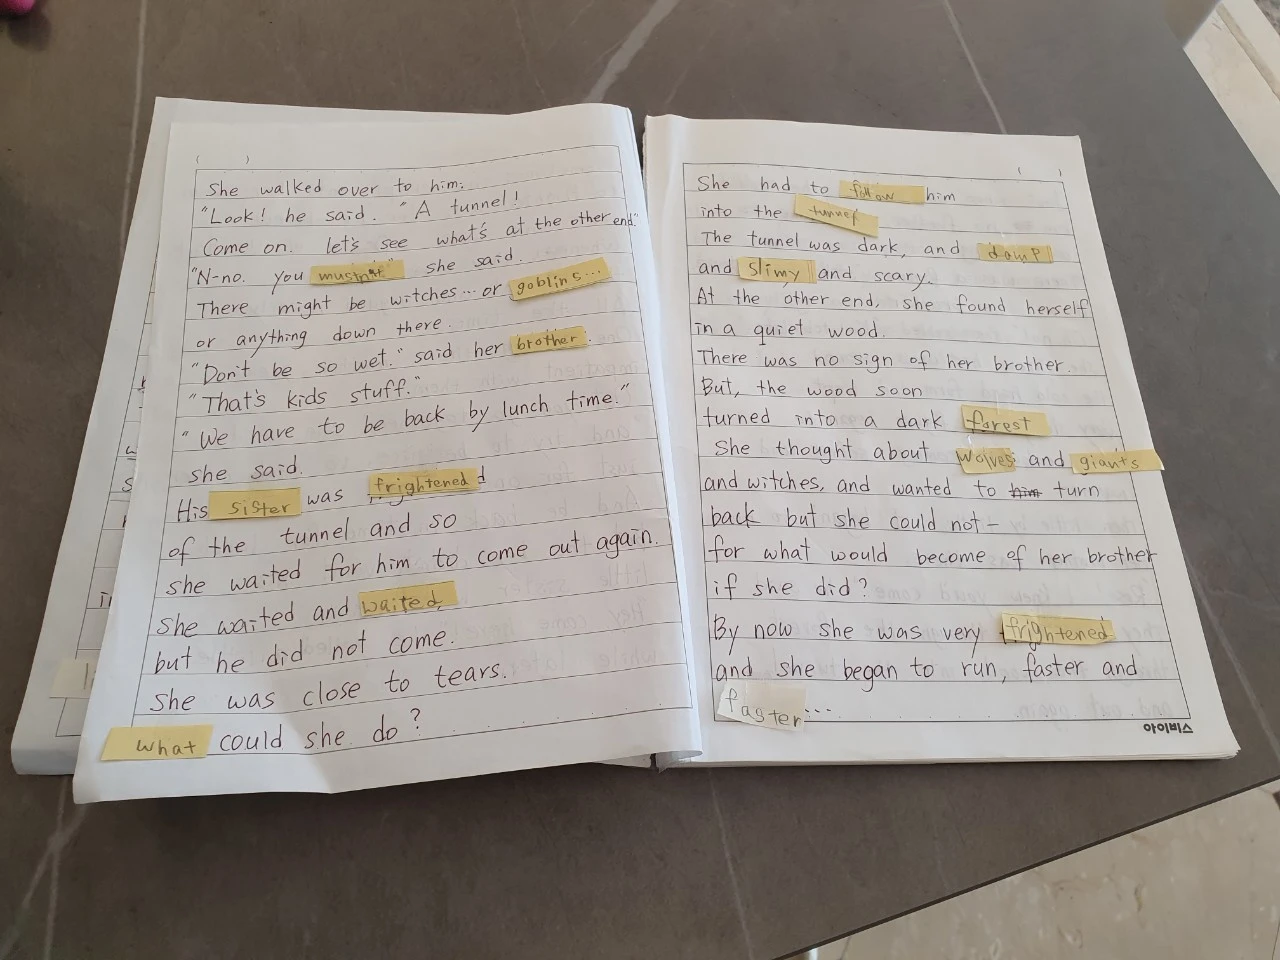 She walked over to him.
"Look! he said. "A tunnel!
Come on. let's see what's at the other end"
"N-no. you mustn't" she said.
There might be witches... or goblins...
or anything down there.
"Don't be so wet." said her brother.
"That's kids stuff."
"We have to be back by lunch time."
she said.
His sister was frightened
of the tunnel and so
she waited for him to come out again.
She waited and waited,
but he did not come.
She was close to tears.
what could she do?
She had to follow him
into the tunnel
The tunnel was dark, and damp
and slimy and scary.
At the other end, she found herself
in a quiet wood.
There was no sign of her brother.
But, the wood soon
turned into a dark forest
She thought about wolves and giants
and witches, and wanted to him turn
back but she could not-
for what would become of her brother
if she did?
By now she was very frightened
and she began to run, faster and
faster...